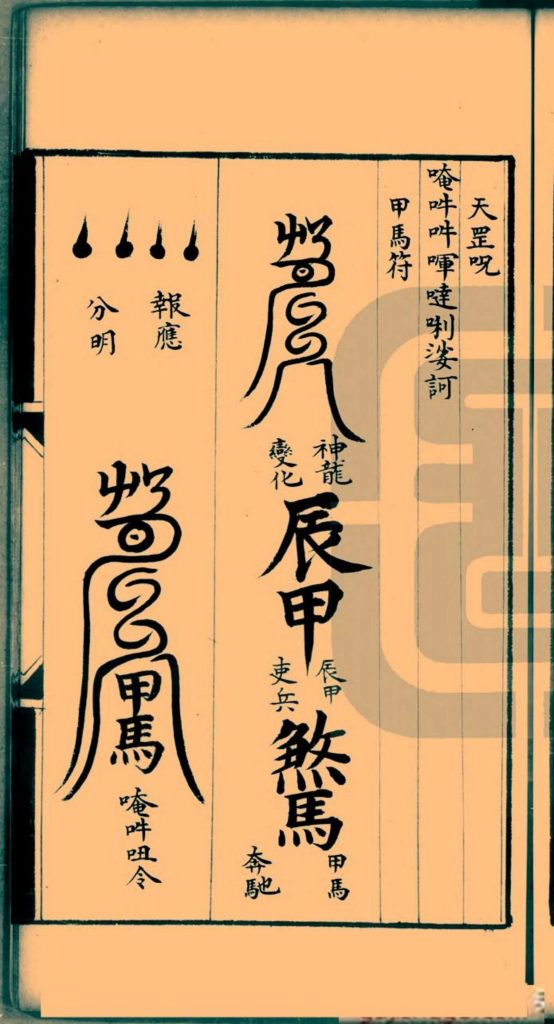 天罡呪
唵吽吽喗噠唎娑訶
甲馬符
神龍
變化
辰甲
辰甲
吏兵
煞馬
甲馬
奔馳
報應
分明
甲馬
唵吽吜令